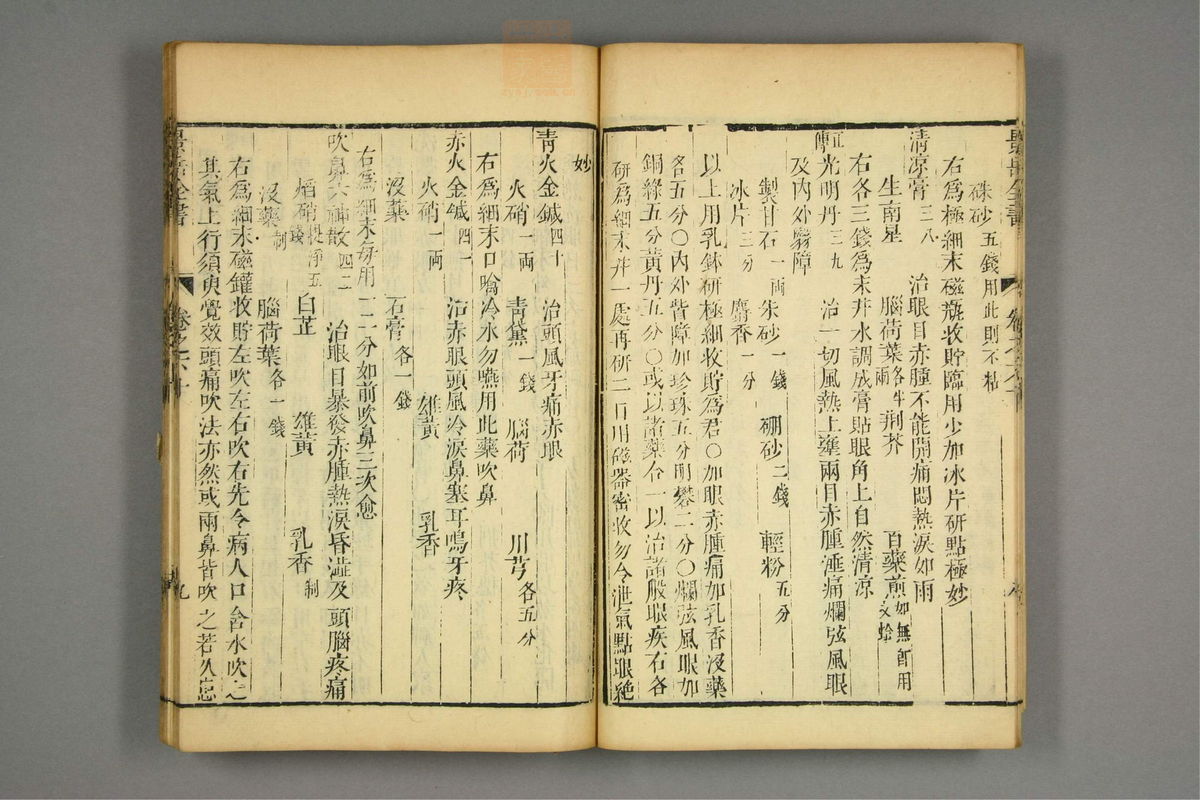 硃砂五錢用此則不粘
右爲極細末磁瓶收貯臨用少加冰片研點極妙
清凉膏三八 治眼目赤腫不能開痛悶熱淚如雨
生南星 腦荷葉各半兩 荆芥 百藥煎如無卽用文蛤
右各三錢爲末井水調成膏貼眼角上自然清凉
光明丹三九 治一切風熱上壅兩目赤腫渾痛爛弦風眼
及內外翳障
製甘石一兩 朱砂一錢 硼砂二錢 輕粉五分
冰片三分 麝香一分
以上用乳鉢研極細收貯爲君○加眼赤腫痛加乳香沒藥
各五分○內外眥障加珍珠五分明礬二分○爛弦風眼加
銅綠五分黃丹五分○或以諸藥合一以治諸般眼疾右各
研爲細末并一處再研二日用磁器密收勿令泄氣點眼絶
妙
靑火金鍼四十 治頭風牙痛赤眼
火硝一兩 靑黛一錢 腦荷 川芎各五分
右爲細末口噙冷水勿嚥用此藥吹鼻
赤火金鍼四一 治赤眼頭風冷淚鼻塞耳鳴牙疼
火硝一兩 雄黃 乳香
沒藥 石膏各一錢
右爲細末每用一二分如前吹鼻三次愈
吹鼻六神散四二 治眼目暴發赤腫熱淚昏澁及頭腦疼痛
焰硝提淨五錢 白芷 雄黃 乳香制
沒藥制 腦荷葉各一錢
右爲細末磁罐收貯左吹左右吹右先令病人口含水吹之
其氣上行須臾覺效頭痛吹法亦然或兩鼻皆吹之若久患
景岳全書
卷之六十
九